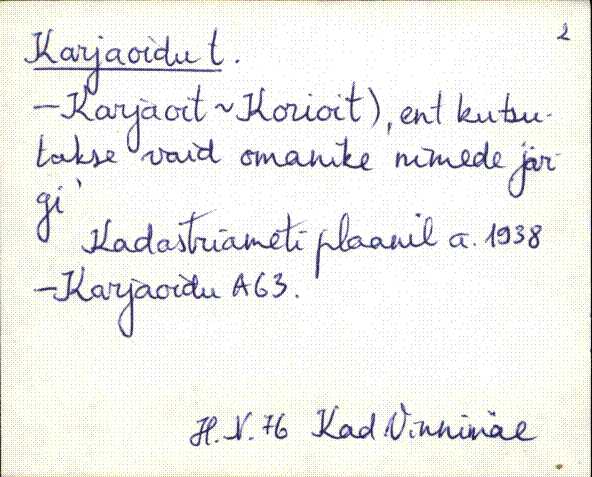 2
Karjaoidu t.
– Karjaoit ~ Korioit), ent kutsu-
takse vaid omanike nimede jär-
gi
Kadastriameti plaanil a. 1938
– Karjaoidu A63.
H.N. 76 Kad Vinninäe